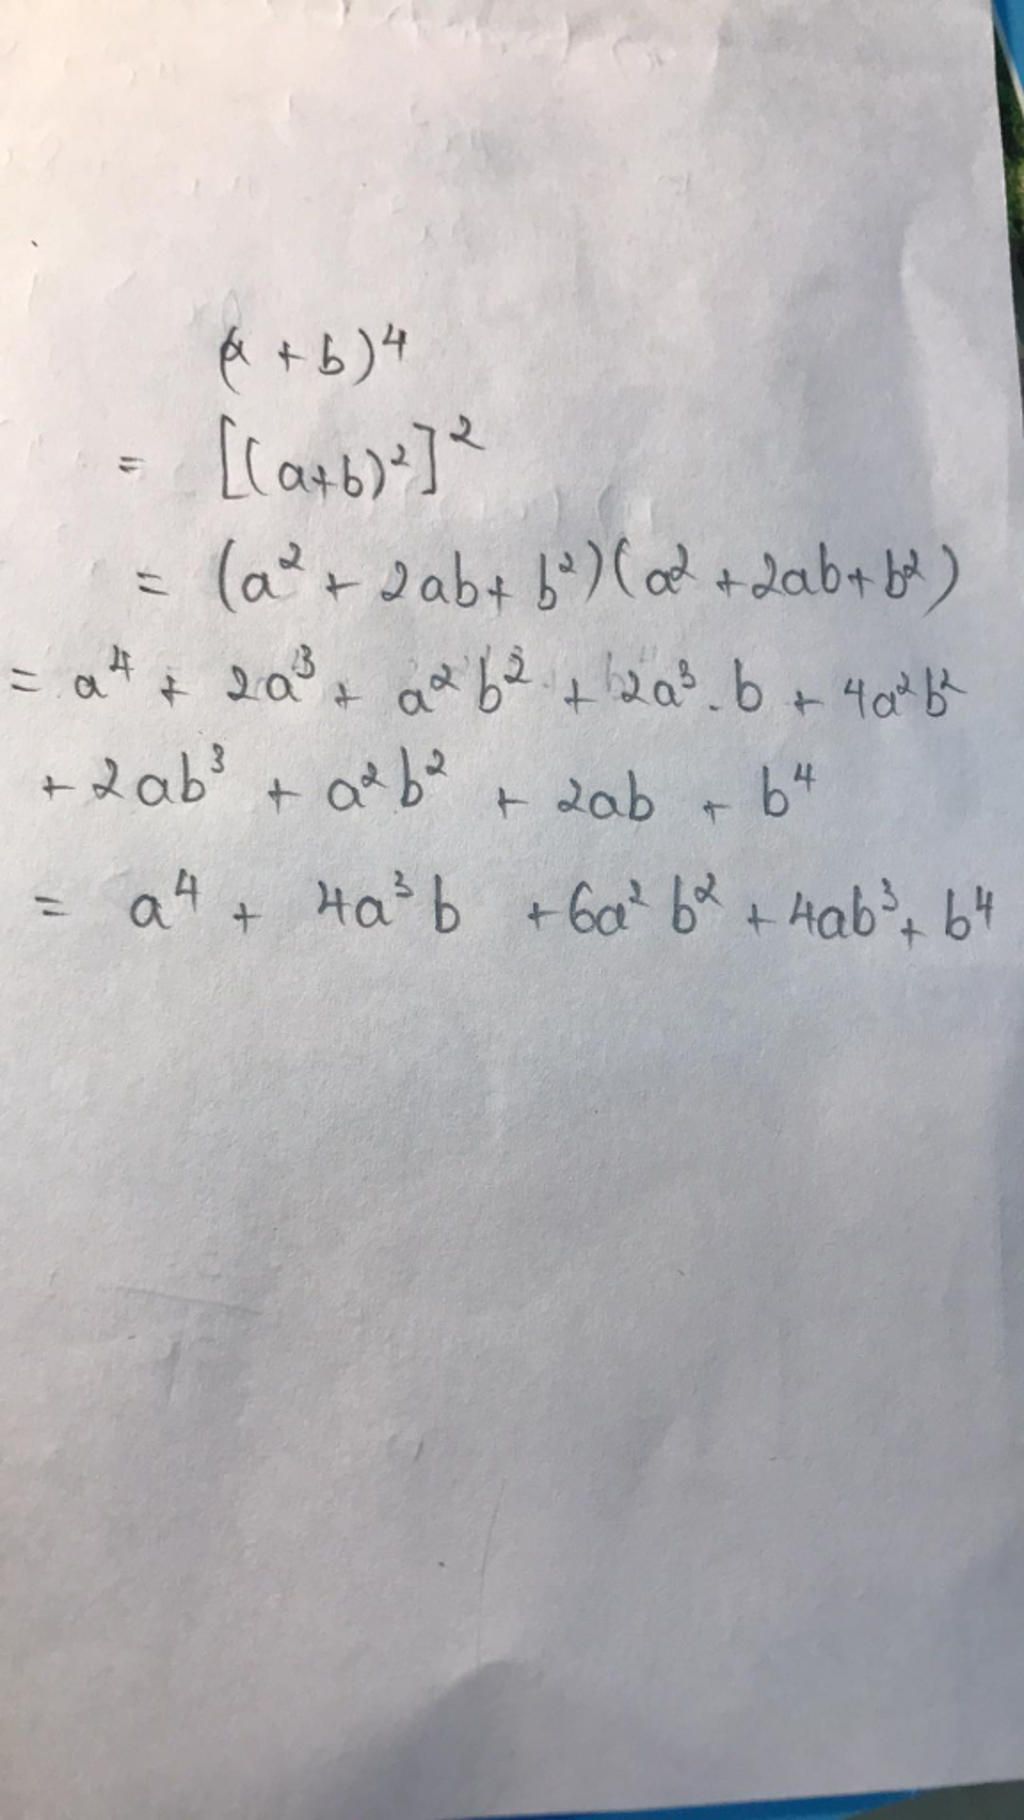 (a + b)⁴
= [(a+b)²]²
= (a² + 2ab + b²)(a² + 2ab + b²)
= a⁴ + 2a³ + a²b² + 2a³.b + 4a²b²
+ 2ab³ + a²b² + 2ab + b⁴
= a⁴ + 4a³b + 6a²b² + 4ab³ + b⁴